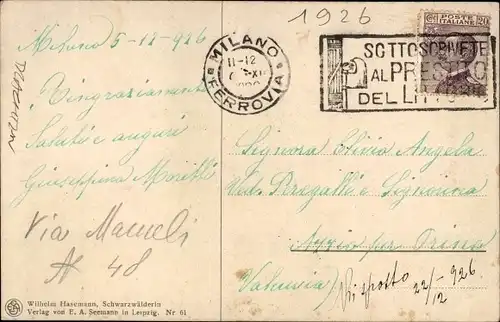 1926
Milano 5-12-926
Ringraziamenti
Saluti e auguri
Giuseppina Moretti
Via Mameli
N 48
MILANO
11-12
FERROVIA
SOTTOSCRIVETE
AL PRESTITO
DEL LITTORIO
POSTE
ITALIANE
Signora Angela
Ved. e Signorina
per
Risposto 22/12 - 926
Wilhelm Hasemann, Schwarzwälderin
Verlag von E. A. Seemann in Leipzig. Nr 61